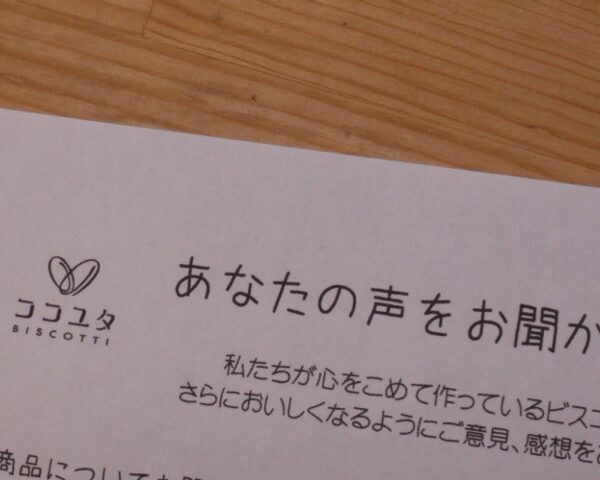 ココユタ
BISCOTTI
あなたの声をお聞か
私たちが心をこめて作っているビスコ
さらにおいしくなるようにご意見、感想を
商品について